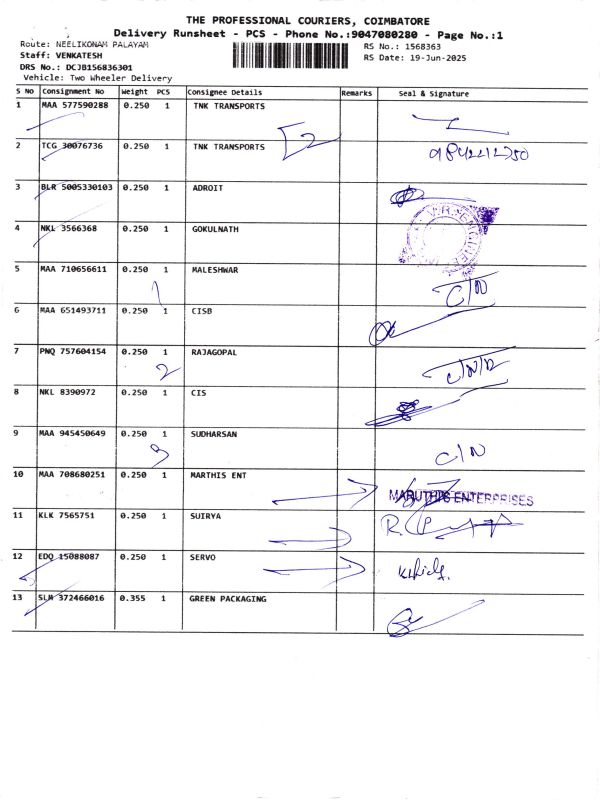 THE PROFESSIONAL COURIERS, COIMBATORE
Delivery Runsheet - PCS - Phone No.:9047080280 - Page No.:1
Route: NEELIKONAM PALAYAM
RS No.: 1568363
Staff: VENKATESH
RS Date: 19-Jun-2025
DRS No.: DCJB156836301
Vehicle: Two Wheeler Delivery
S No Consignment No Weight PCS Consignee Details Remarks Seal & Signature
1 MAA 577590288 0.250 1 TNK TRANSPORTS
2 TCG 30076736 0.250 1 TNK TRANSPORTS 2
3 BLR 5005330103 0.250 1 ADROIT
4 NKL 3566368 0.250 1 GOKULNATH
5 MAA 710656611 0.250 1 MALESHWAR C/N
1
6 MAA 651493711 0.250 1 CISB
7 PNQ 757604154 0.250 1 RAJAGOPAL
2
8 NKL 8390972 0.250 1 CIS
9 MAA 945450649 0.250 1 SUDHARSAN C/N
3
10 MAA 708680251 0.250 1 MARTHIS ENT MARUTHIS ENTERPRISES
11 KLK 7565751 0.250 1 SUIRYA
12 EDQ 15088087 0.250 1 SERVO
13 SLM 372466016 0.355 1 GREEN PACKAGING